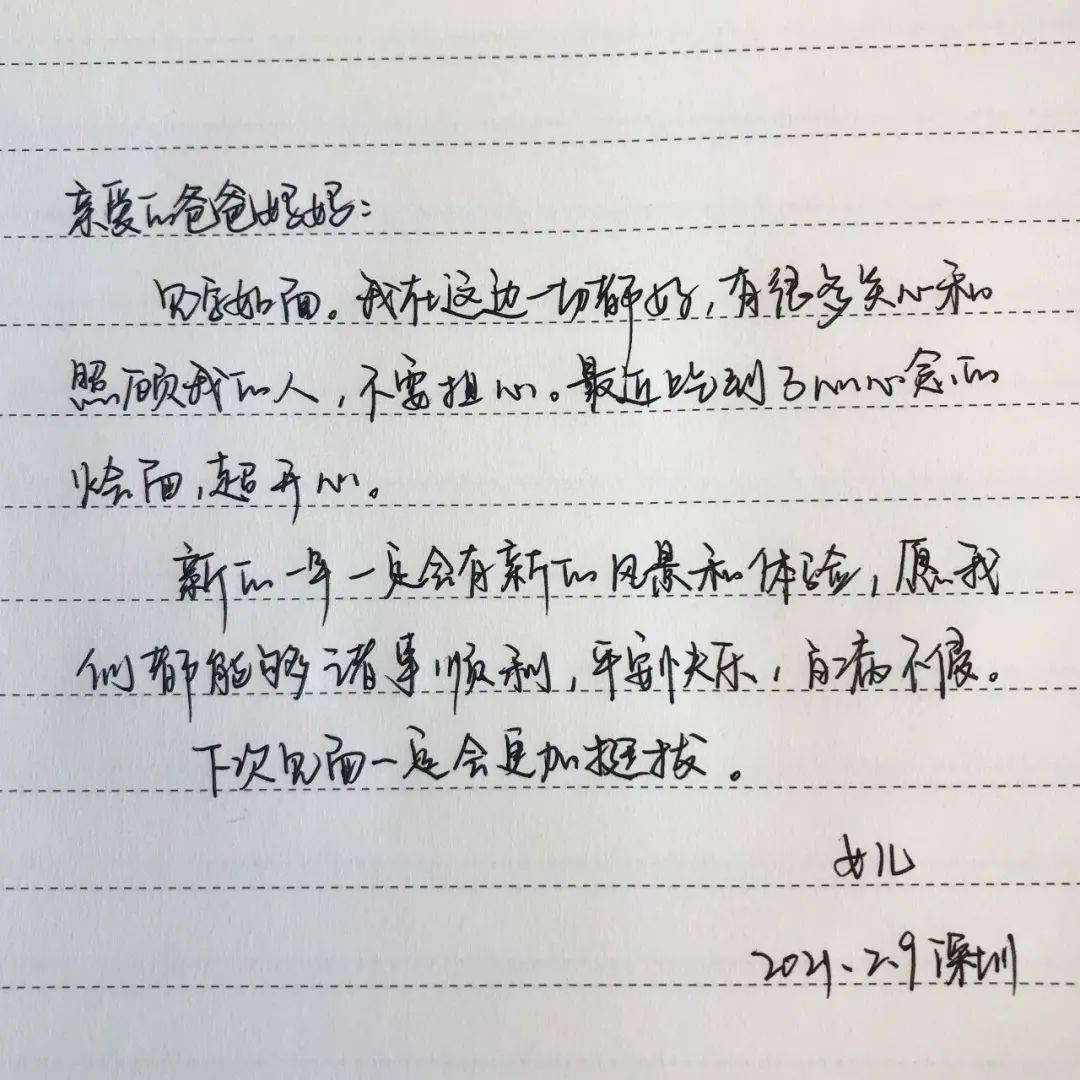 亲爱的爸爸妈妈:
见字如面。我在这边一切都好,有很多关心和
照顾我的人,不要担心。最近吃到了心心念的
烩面,超开心。
新的一年一定会有新的风景和体验,愿我
们都能够诸事顺利,平安快乐,百病不侵。
下次见面一定会更加挺拔。
女儿
2021.2.9 深圳